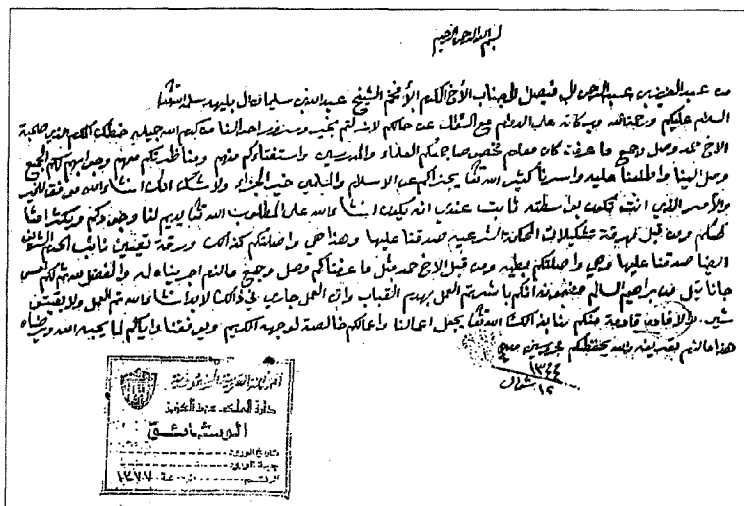 بسم الله الرحمن الرحيم
من عبدالعزيز بن عبدالرحمن ال فيصل الى جناب الأخ المكرم الأفخم الشيخ عبدالله بن سليمان ال بليهد سلمه الله تعالى
السلام عليكم ورحمة الله وبركاته على الدوام مع السؤال عن حالكم لازلتم بخير وسرور احوالنا من كرم الله جميلة خطكم المكرم الذي صحبة
الاخ حمد وصل وجميع ما عرفت كان معلوم مخصوص صاحبكم العلماء والمدرسين واستفتاكم منهم ومناظرتكم معهم وجوابهم لكم الجميع
وصل الينا واطلعنا عليه واسرنا كثير الله تعالى يجزاكم عن الاسلام والمسلمين خير الجزاء ولا شك انك انشاء الله موفق للخير
والأمر الذي انت تكون بواسطته ثابت عندي انه يكون انشاء الله على المطلوب الله تعالى يديم لنا وجودكم
لكم ومن قبل ورقة تشكيلات المحاكمة الشرعية صدقنا عليها وهذا هي واصلتكم كذالك ورقة تعيين نائب الحرم الشريف
ايضا صدقنا عليها وهي واصلتكم بطيه ومن قبل الاخ حمد مثل ما عرفناكم وصل وجميع مالزم اجريناه له
جانا من ابراهيم السالم مضمونه انكم باشرتم العمل بهدم القباب وان العمل جاري في ذالك لابد انشاء الله تم العمل ولا بقي
شيء الله تعالى يجعل اعمالنا واعمالكم خالصة لوجهه الكريم ويوفقنا واياكم لما يحبه الله ويرضاه
هذا مالزم تعريفه والله يحفظكم محروسين
١٣٤٤
١٢ شوال
المملكة العربية السعودية
دارة الملك عبد العزيز
الوثائق
تاريخ الورود
جهة الورود
الرقم ١٣٧٧